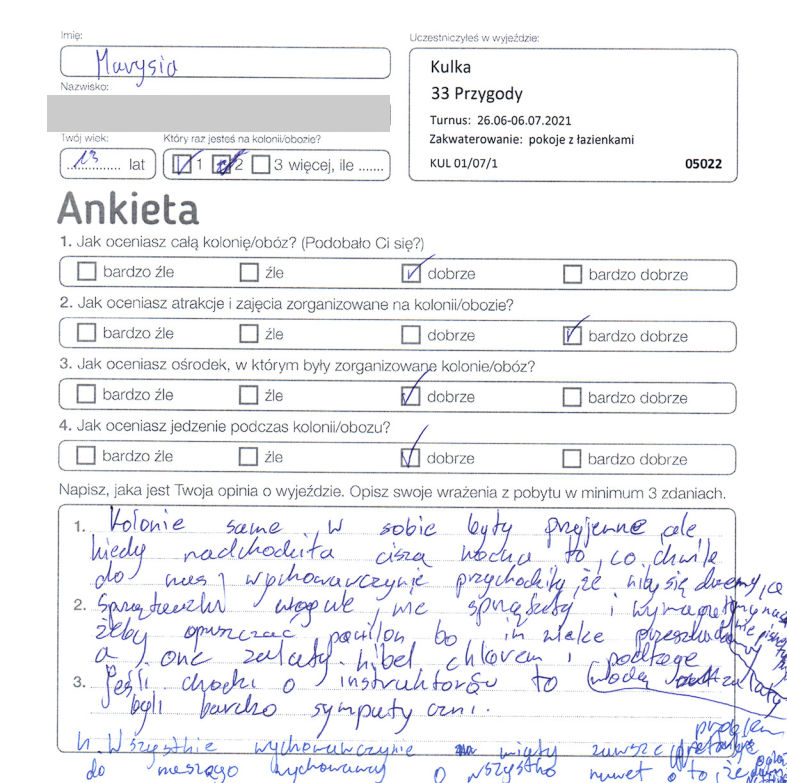 Imię:
Marysia
Nazwisko:
Twój wiek:
13 lat
Który raz jesteś na kolonii/obozie?
1 2 3 więcej, ile .......
Uczestniczyłeś w wyjeździe:
Kulka
33 Przygody
Turnus: 26.06-06.07.2021
Zakwaterowanie: pokoje z łazienkami
KUL 01/07/1 05022
Ankieta
1. Jak oceniasz całą kolonię/obóz? (Podobało Ci się?)
bardzo źle źle dobrze bardzo dobrze
2. Jak oceniasz atrakcje i zajęcia zorganizowane na kolonii/obozie?
bardzo źle źle dobrze bardzo dobrze
3. Jak oceniasz ośrodek, w którym były zorganizowane kolonie/obóz?
bardzo źle źle dobrze bardzo dobrze
4. Jak oceniasz jedzenie podczas kolonii/obozu?
bardzo źle źle dobrze bardzo dobrze
Napisz, jaka jest Twoja opinia o wyjeździe. Opisz swoje wrażenia z pobytu w minimum 3 zdaniach.
1. Kolonie same w sobie były przyjemne ale,
kiedy nadchodziła cisza nocna to, co chwile
do nas wychowawczynie przychodziły, że niby się drzemy, a
2. Sprzątaczki wogule nie sprzątały i
żeby opuszczać pawilon bo im
a one zalały kibel chlorem i podłogę
3. Jeśli chodzi o instruktorów to wodą zalały
byli bardzo sympatyczni.
4. Wszystkie wychowawczynie miały zawsze problem
do naszego wychowawcy o wszystko nawet o to, że